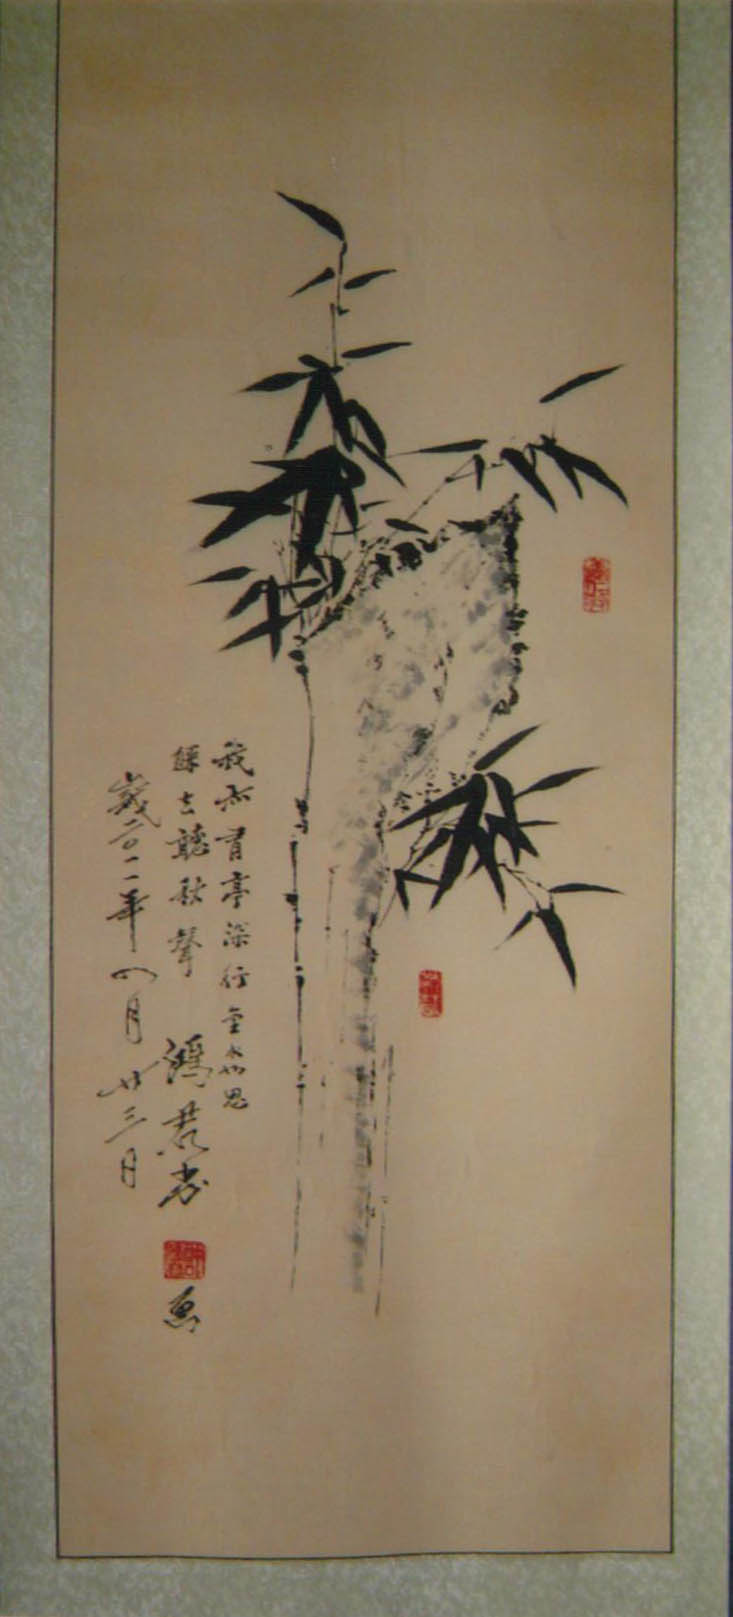 我亦有亭深竹里也思
歸去聽秋聲 鴻君
歲二〇一一年月廿三日